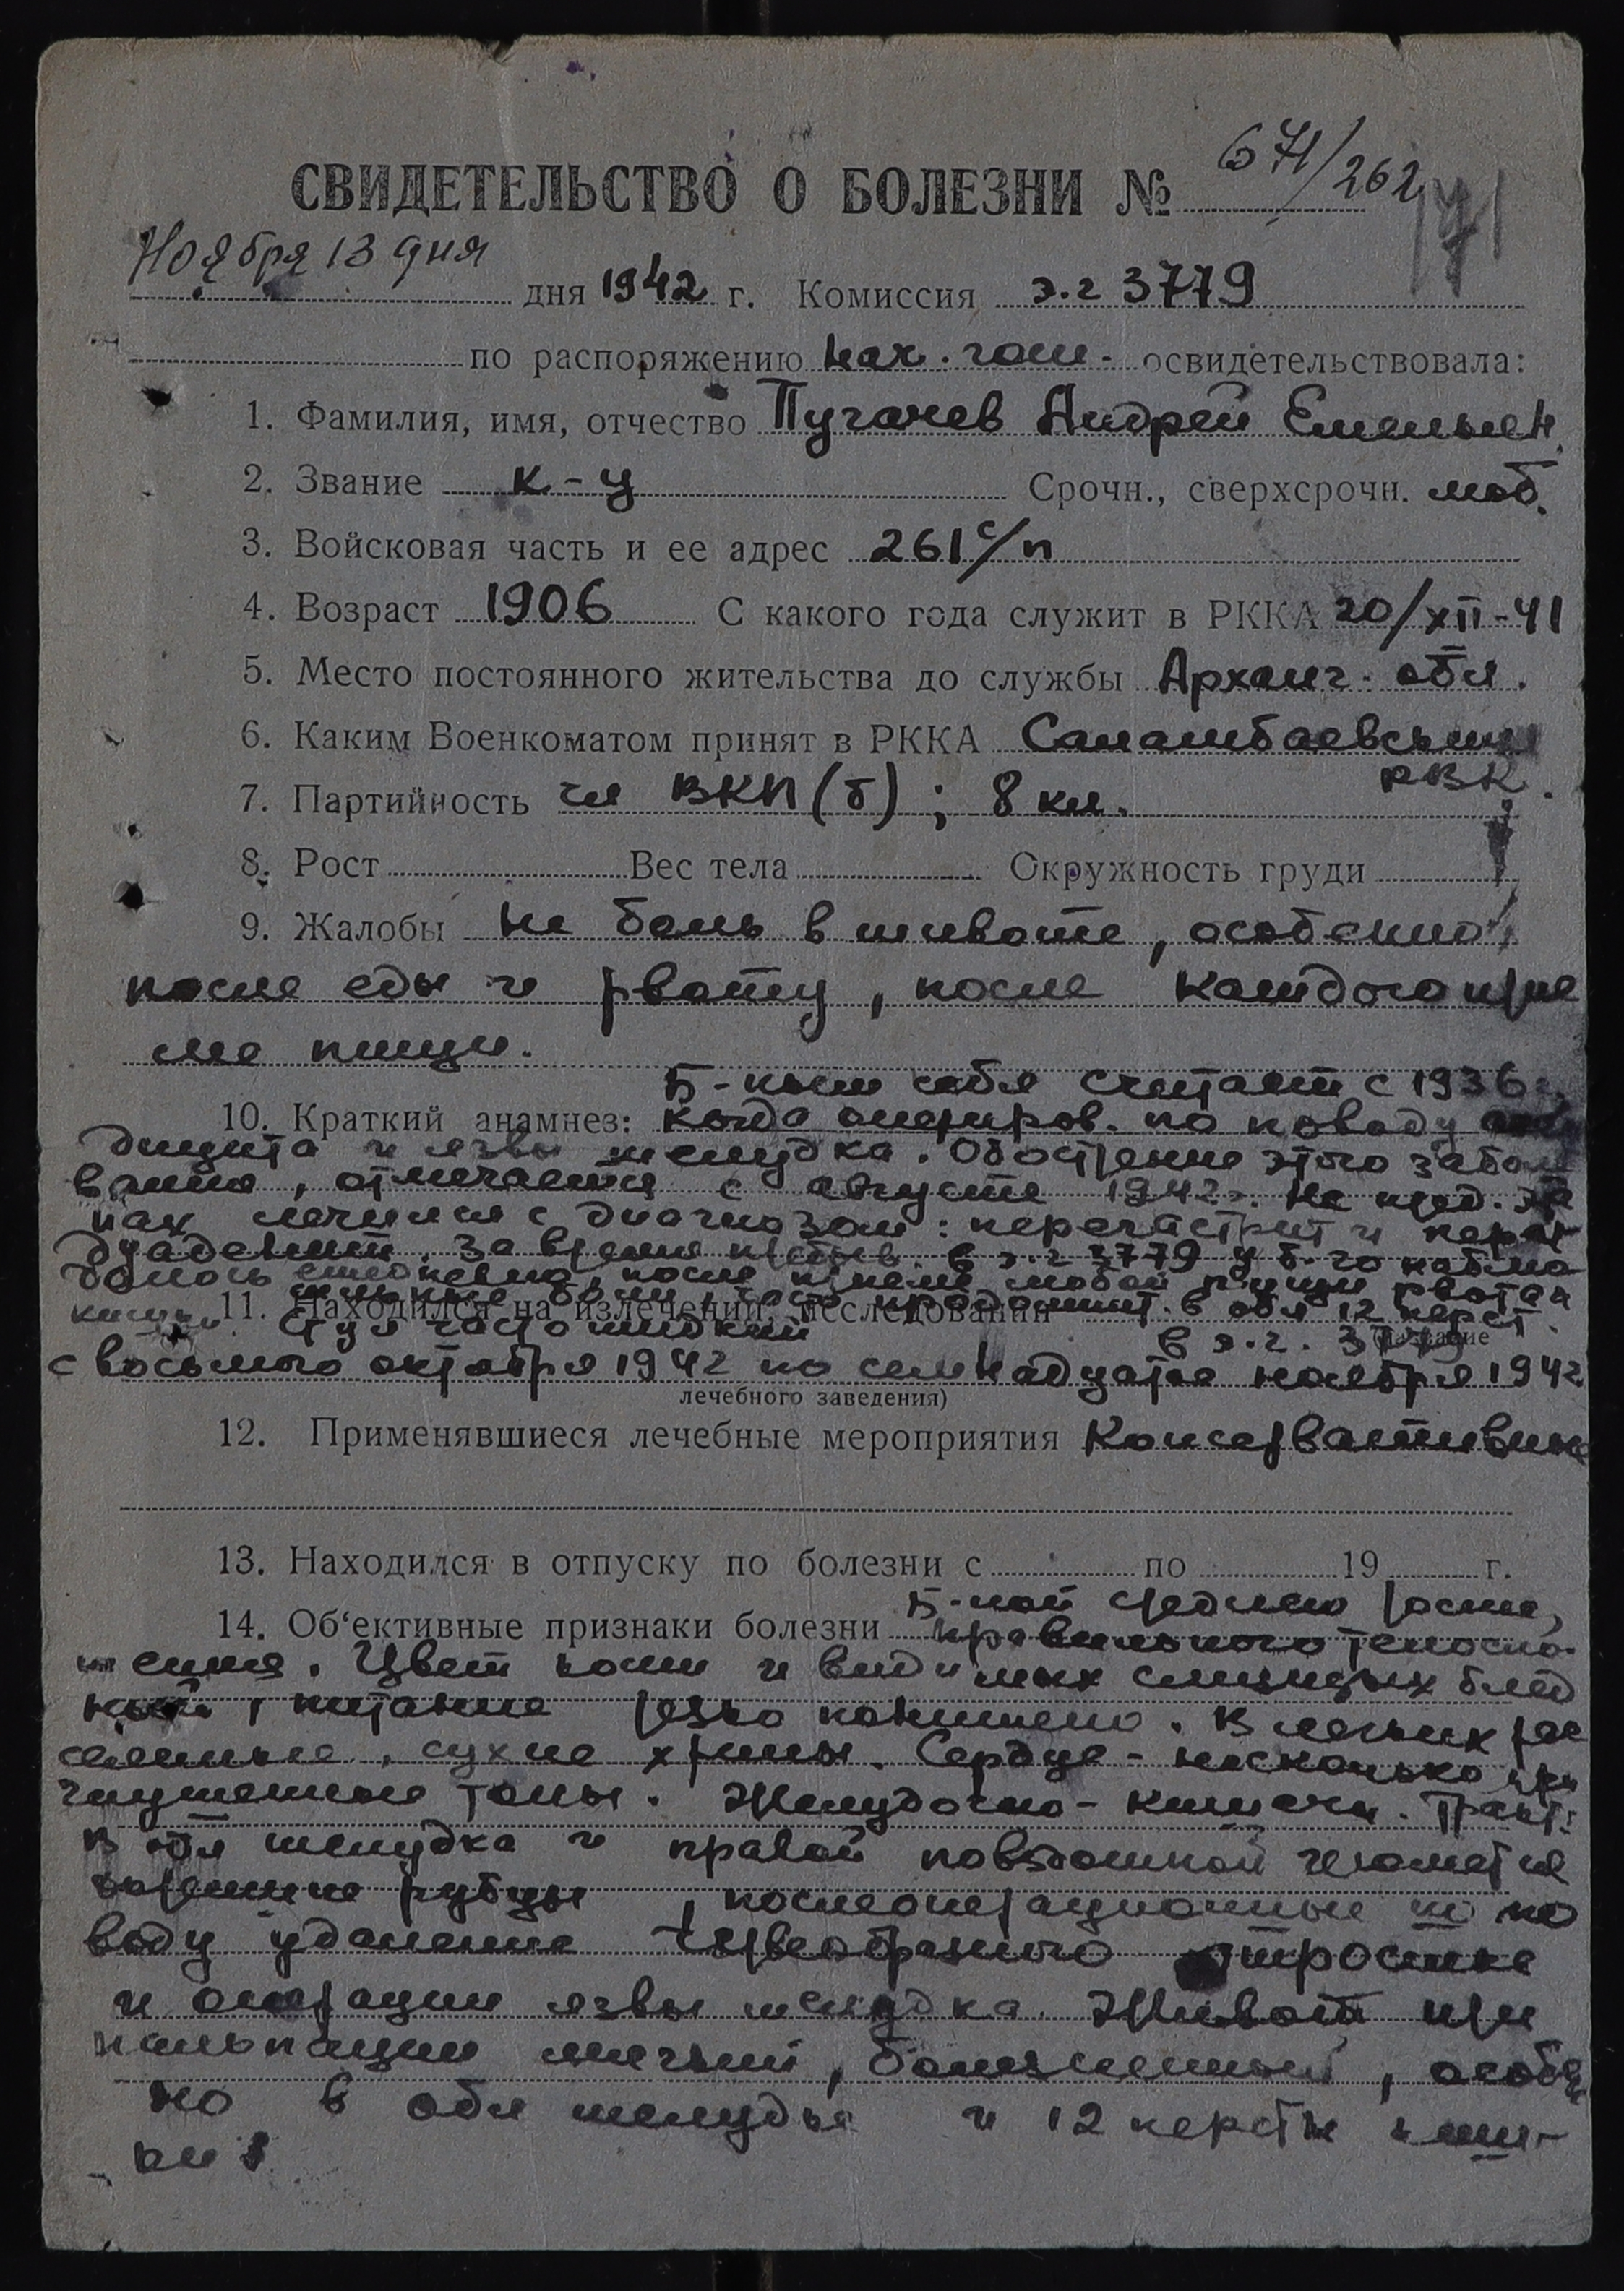 СВИДЕТЕЛЬСТВО О БОЛЕЗНИ № 671/262
Ноября 13 дня дня 1942 г. Комиссия э.г 3779
по распоряжению нач. госп. освидетельствовала:
1. Фамилия, имя, отчество Пугачев Андрей Емельян.
2. Звание к-ц Срочн., сверхсрочн. моб.
3. Войсковая часть и ее адрес 261 с/п
4. Возраст 1906 С какого года служит в РККА 20/XII-41
5. Место постоянного жительства до службы Арханг. обл.
6. Каким Военкоматом принят в РККА
РВК.
7. Партийность чл ВКП(б); 8 кл.
8. Рост Вес тела Окружность груди
9. Жалобы на боль в животе, особенно
после еды и рвоту, после каждого прие
ма пищи.
Б-ным себя считает с 1936 г.
10. Краткий анамнез: когда опериров. по поводу
дицита и язвы желудка. Обострение этого забол
вания, отмечается с августа 1942 г. На пред. эта
пах лечился с диагнозом: перигастрит и пери
дуаденит. За время пребыв. в э.г 3779 у б-го наблю
далось ежедневно, после приема любой пищи рвота
боли в обл 12 перст.
11. Находился на излечении, исследовании
кишки. Стул часто жидкий в э.г. 3779
название
с восьмого октября 1942 по семнадцатое ноября 1942
лечебного заведения)
12. Применявшиеся лечебные мероприятия Консервативные
13. Находился в отпуску по болезни с по 19 г.
Б-ной среднего роста,
14. Об‘ективные признаки болезни правильного телосло
жения. Цвет кожи и видимых слизистых блед
ный, питание резко понижено. В легких рас
сеянные, сухие хрипы. Сердце - несколько при
глушенные тоны. Желудочно-кишечн. тракт:
В обл желудка и правой повздошной имеются
рубцы, послеоперационные по по
воду удаления червеобразного отростка
и операции язвы желудка. Живот при
пальпации мягкий, болезненный, особен
но в обл желудка и 12 перстн киш-
ки